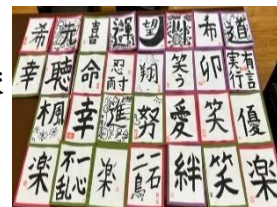 希 喜 望 希 道
幸 聴 命 忍耐 翔 笑う 卯 有言実行
楓 幸 進 努 愛 笑 優
楽 一心不乱 楽 二石鳥 絆 笑 楽